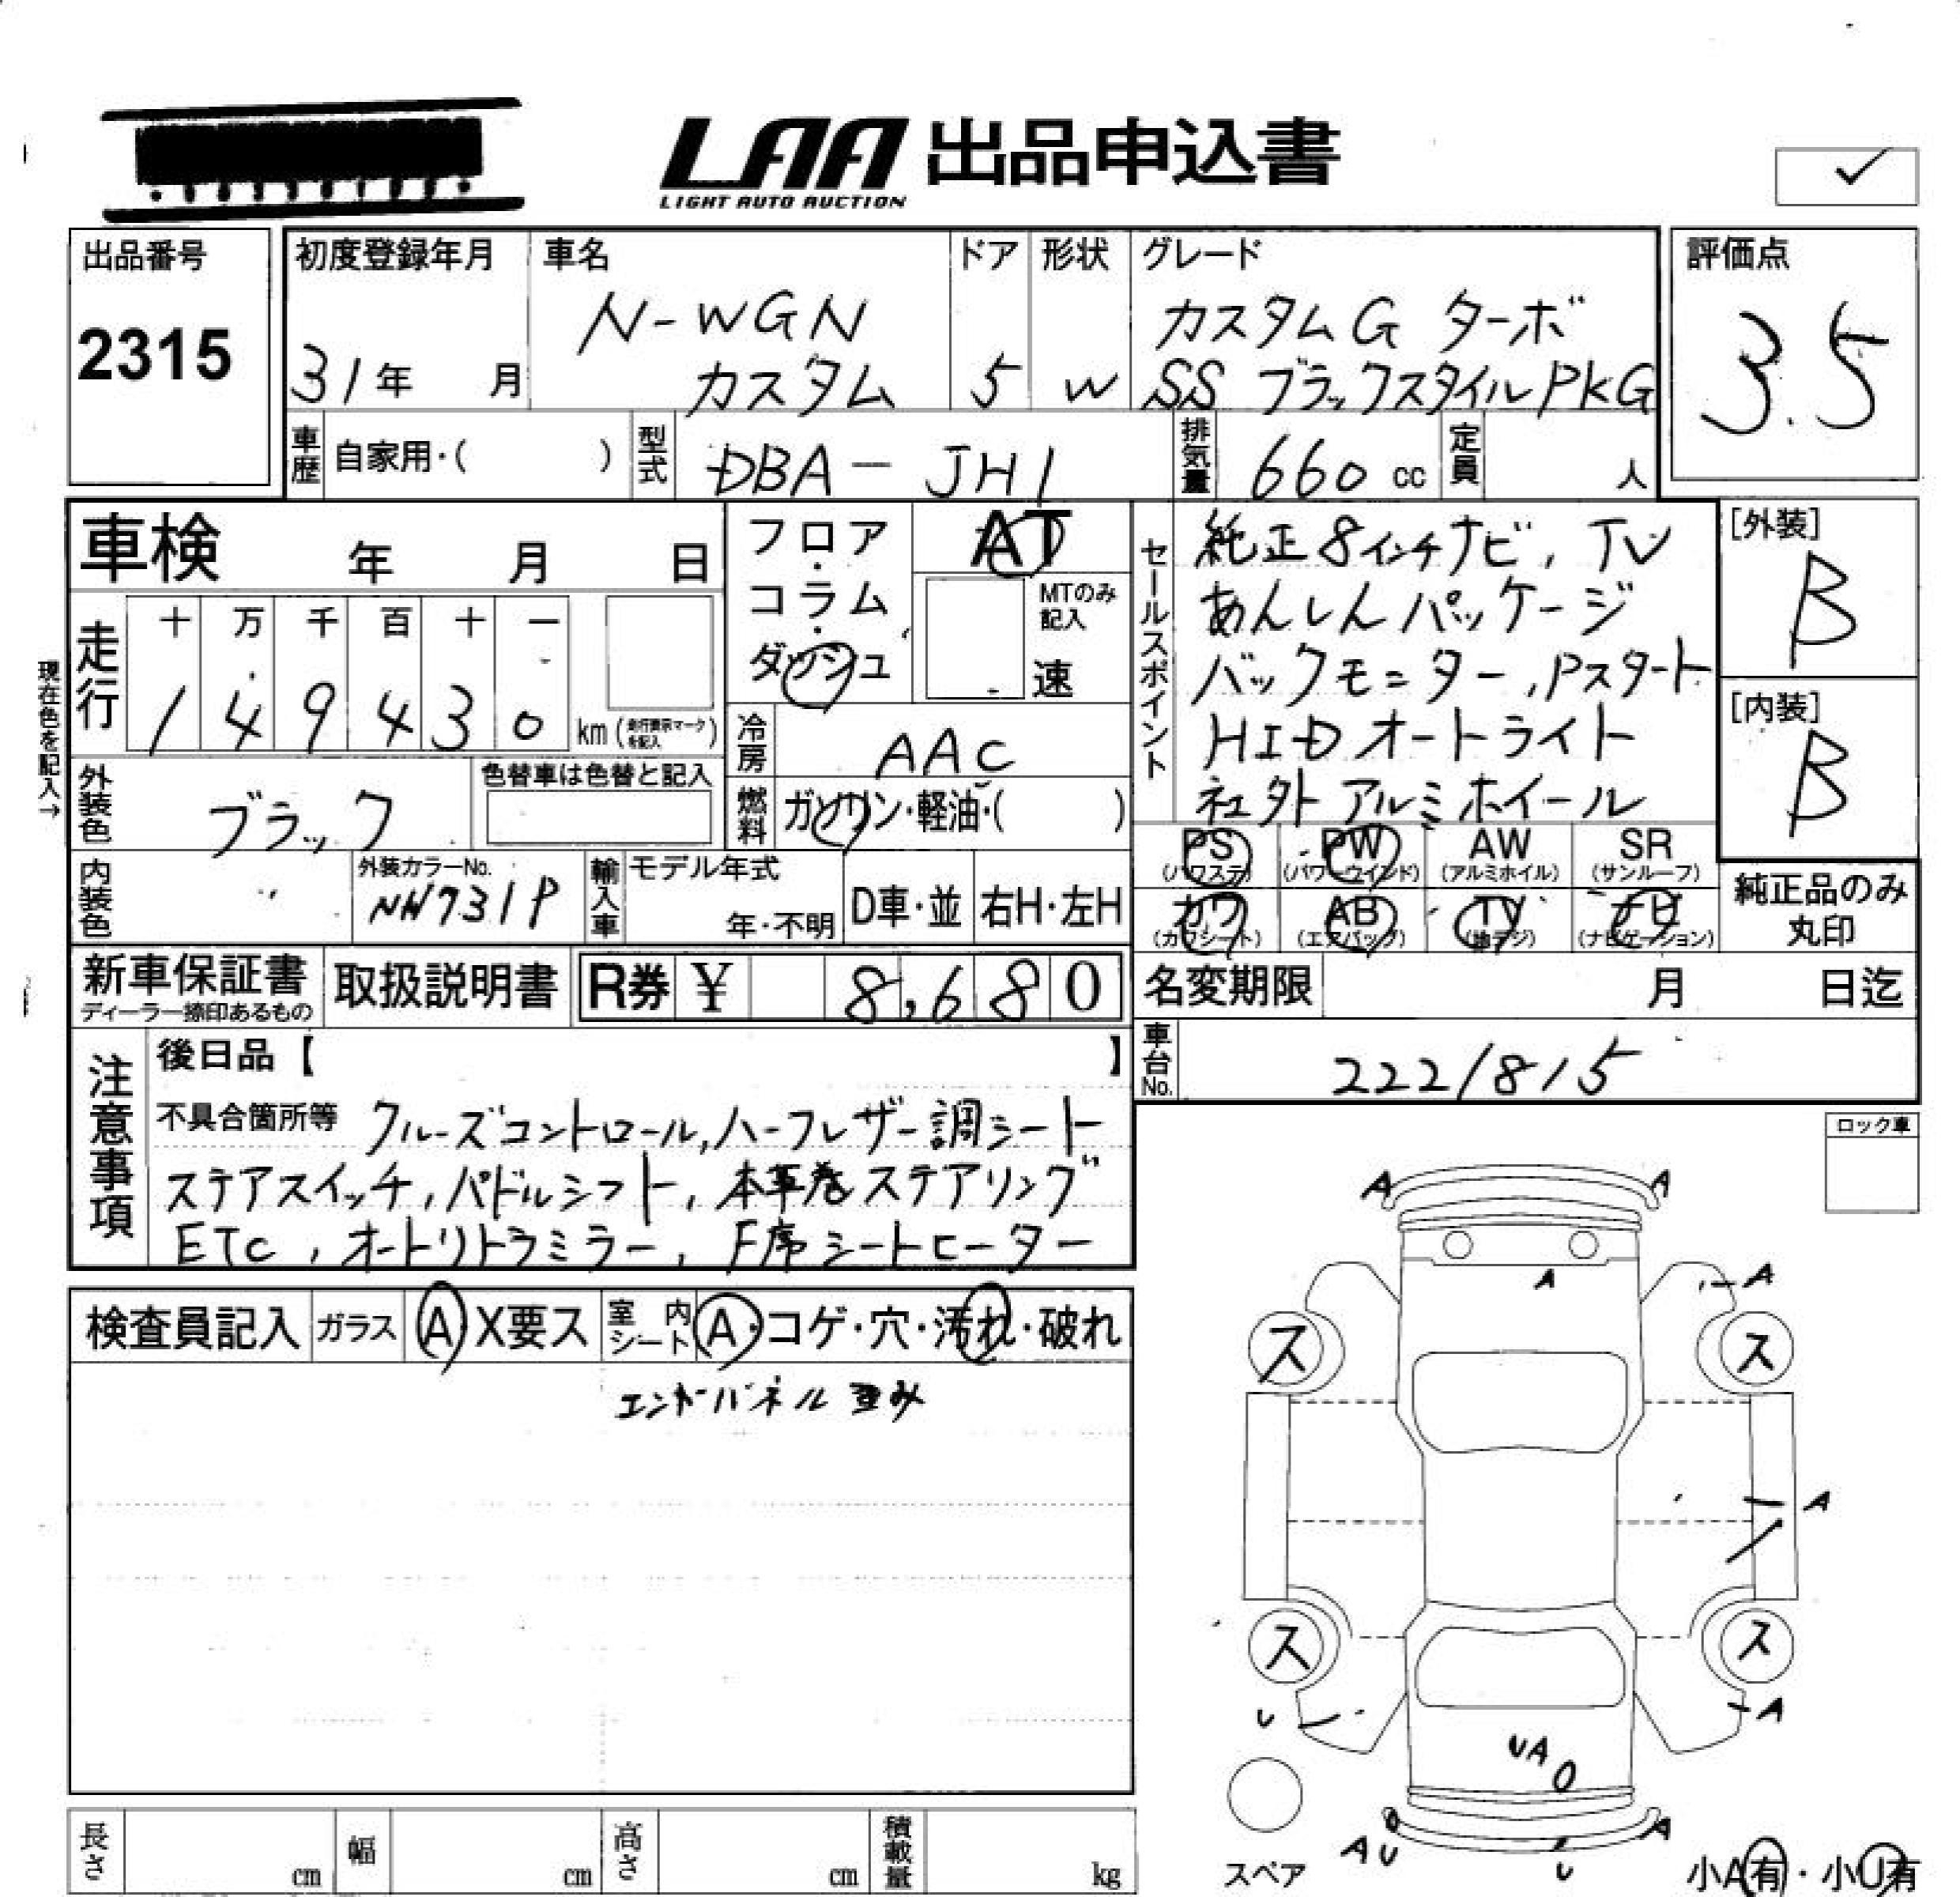 LAA 出品申込書
LIGHT AUTO AUCTION
出品番号
2315
初度登録年月
31年 月
車名
N-WGN
カスタム
ドア
5
形状
W
グレード
カスタムG ターボ
SS ブラックスタイルPKG
評価点
3.5
車歴 自家用・( )
型式 DBA-JH1
排気量 660 cc
定員 人
車検 年 月 日
フロア・コラム・ダッシュ
AT
MTのみ記入
速
セールスポイント
純正8インチナビ, TV
あんしんパッケージ
バックモニター, Pスタート
HID オートライト
社外アルミホイール
[外装]
B
[内装]
B
現在色を記入→
走行
十 万 千 百 十 一
1 4 9 4 3 0
km (走行表示マークを記入)
冷房 AAC
外装色 ブラック
色替車は色替と記入
燃料 ガソリン・軽油・( )
内装色 〃
外装カラーNo.
NH731P
輸入車
モデル年式
年・不明
D車・並
右H・左H
PS (パワステ)
PW (パワーウインド)
AW (アルミホイル)
SR (サンルーフ)
カワ (カワシート)
AB (エアバッグ)
TV (地デジ)
ナビ (ナビゲーション)
純正品のみ
丸印
新車保証書
ディーラー捺印あるもの
取扱説明書
R券 ¥ 8,680
名変期限 月 日迄
車台No. 2221815
注意事項
後日品【 】
不具合箇所等 クルーズコントロール, ハーフレザー調シート
ステアスイッチ, パドルシフト, 本革巻ステアリング
ETC, オートリトラミラー, F席シートヒーター
ロック車
検査員記入 ガラス A・X要ス 室内シート A・コゲ・穴・汚れ・破れ
エンドパネル歪み
A A
A
A
ス ス
A
ス ス
U
A
UA
A U
U
A
スペア
小A有・小U有
長さ cm
幅 cm
高さ cm
積載量 kg